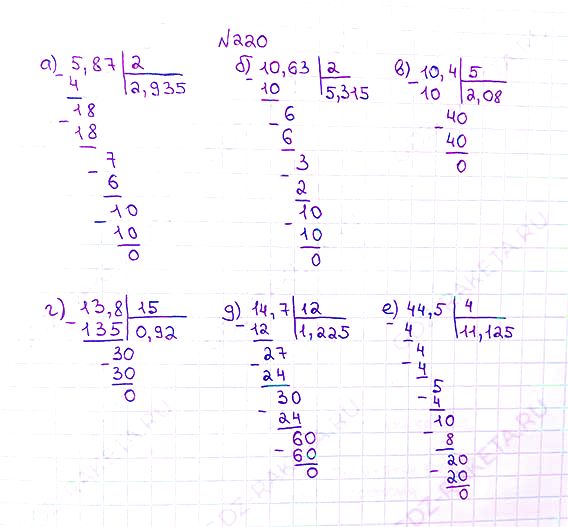 №220
а) 5,87 | 2
- 4 | 2,935
18
- 18
7
- 6
10
- 10
0
б) 10,63 | 2
- 10 | 5,315
6
- 6
3
- 2
10
- 10
0
в) 10,4 | 5
- 10 | 2,08
40
- 40
0
г) 13,8 | 15
- 135 | 0,92
30
- 30
0
д) 14,7 | 12
- 12 | 1,225
27
- 24
30
- 24
60
- 60
0
е) 44,5 | 4
- 4 | 11,125
4
- 4
5
- 4
10
- 8
20
- 20
0
DZ-RAKETA.RU
DZ-RAKETA.RU
DZ-RAKETA.RU